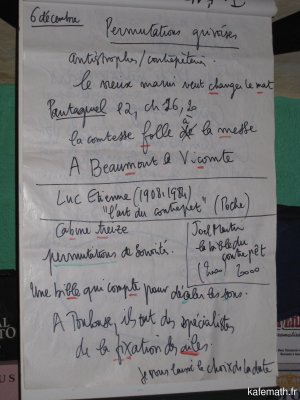 6 décembre
Permutations grivoises
antistrophes/contrepèterie
le vieux marin veut changer le mat
Pantagruel 12, ch 16,
la comtesse folle de à la messe
A Beaumont le Vicomte
Luc Etienne (1908-1984)
"l'art du contrepet" (Poche)
Cabine treize
permutations de sonorité.
Joel Martin
la bible du
contrepèt
2000
Une bible qui compte pour décaler les sons.
A Toulouse, ils ont des spécialistes
de la fixation des ailes.
Je vous laisse le choix de la date
kafemath.fr